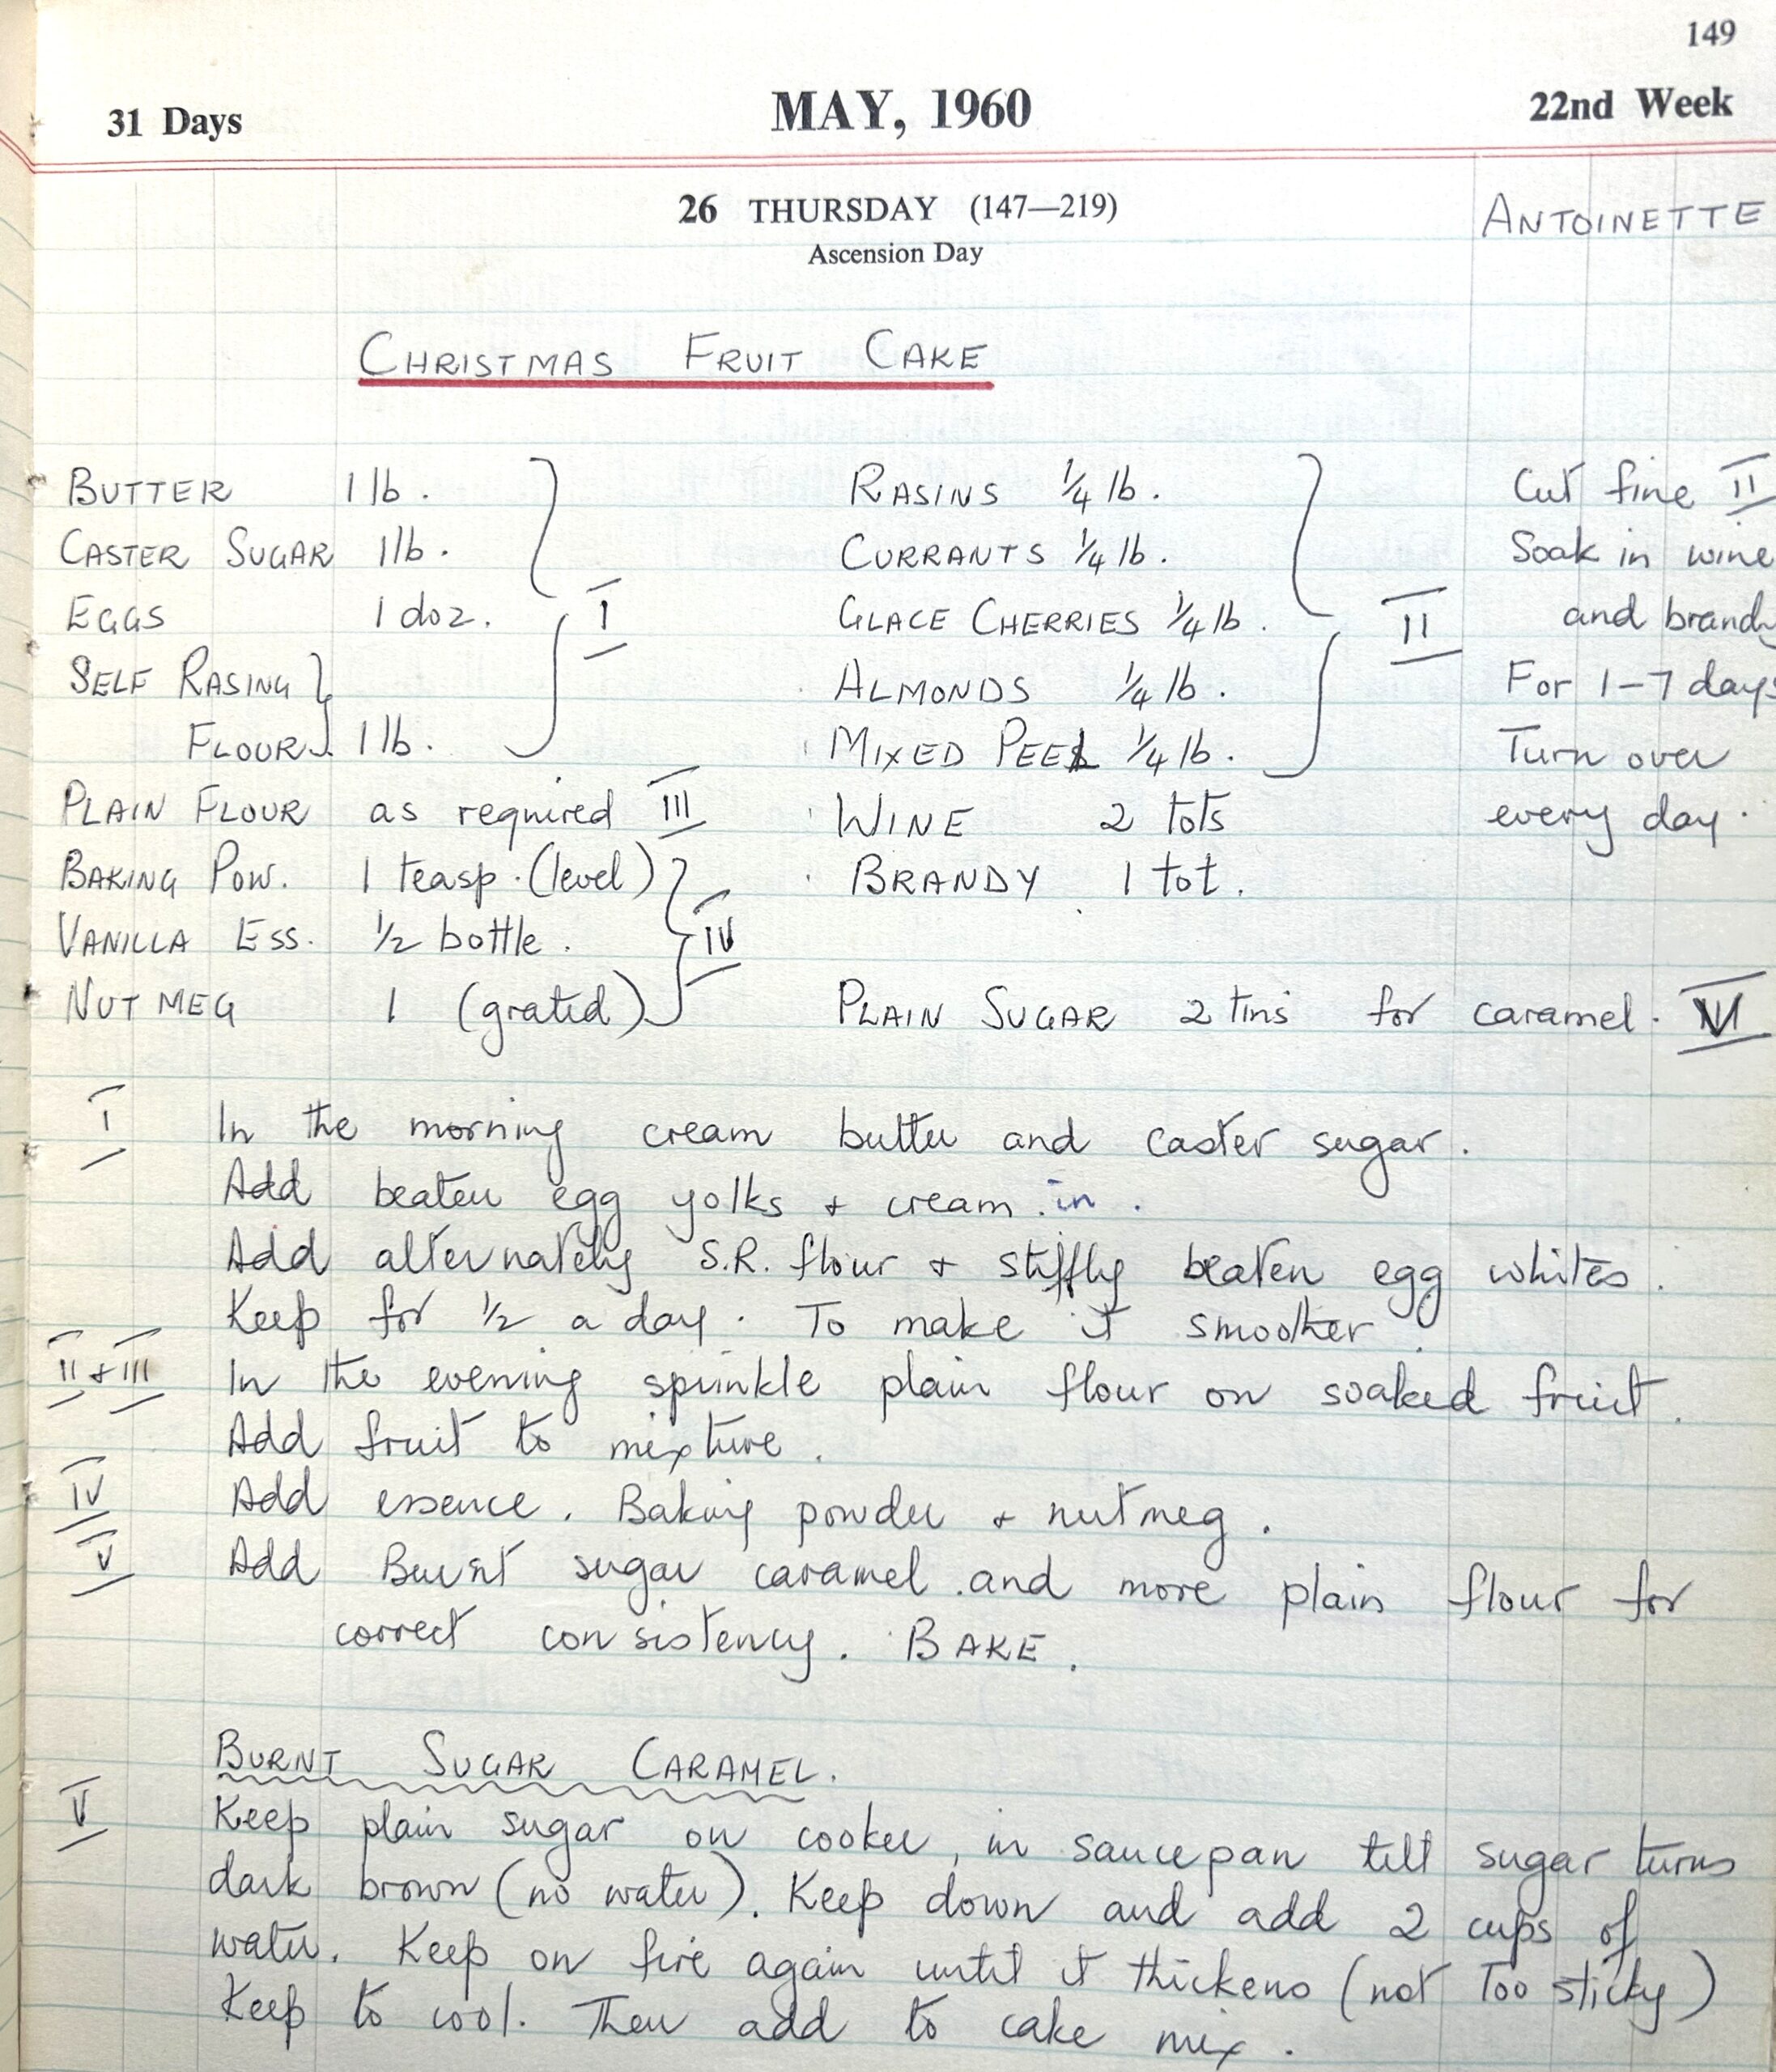 149
31 Days MAY, 1960 22nd Week
26 THURSDAY (147—219) ANTOINETTE
Ascension Day
CHRISTMAS FRUIT CAKE
BUTTER 1 lb. RASINS 1/4 lb. Cut fine II
CASTER SUGAR 1 lb. CURRANTS 1/4 lb. Soak in wine
EGGS 1 doz. I GLACE CHERRIES 1/4 lb. II and brandy
SELF RASING ALMONDS 1/4 lb. For 1-7 days
FLOUR 1 lb. MIXED PEEL 1/4 lb. Turn over
PLAIN FLOUR as required III WINE 2 tots every day.
BAKING POW. 1 teasp. (level) BRANDY 1 tot.
VANILLA ESS. 1/2 bottle. IV
NUTMEG 1 (grated) PLAIN SUGAR 2 tins for caramel. V
I In the morning cream butter and caster sugar.
Add beaten egg yolks + cream in.
Add alternately S.R. flour + stiffly beaten egg whites.
Keep for 1/2 a day. To make it smoother.
II + III In the evening sprinkle plain flour on soaked fruit.
Add fruit to mixture.
IV Add essence. Baking powder + nutmeg.
V Add Burnt sugar caramel and more plain flour for
correct consistency. BAKE.
BURNT SUGAR CARAMEL.
V Keep plain sugar on cooker, in saucepan till sugar turns
dark brown (no water). Keep down and add 2 cups of
water. Keep on fire again until it thickens (not too sticky)
Keep to cool. Then add to cake mix.